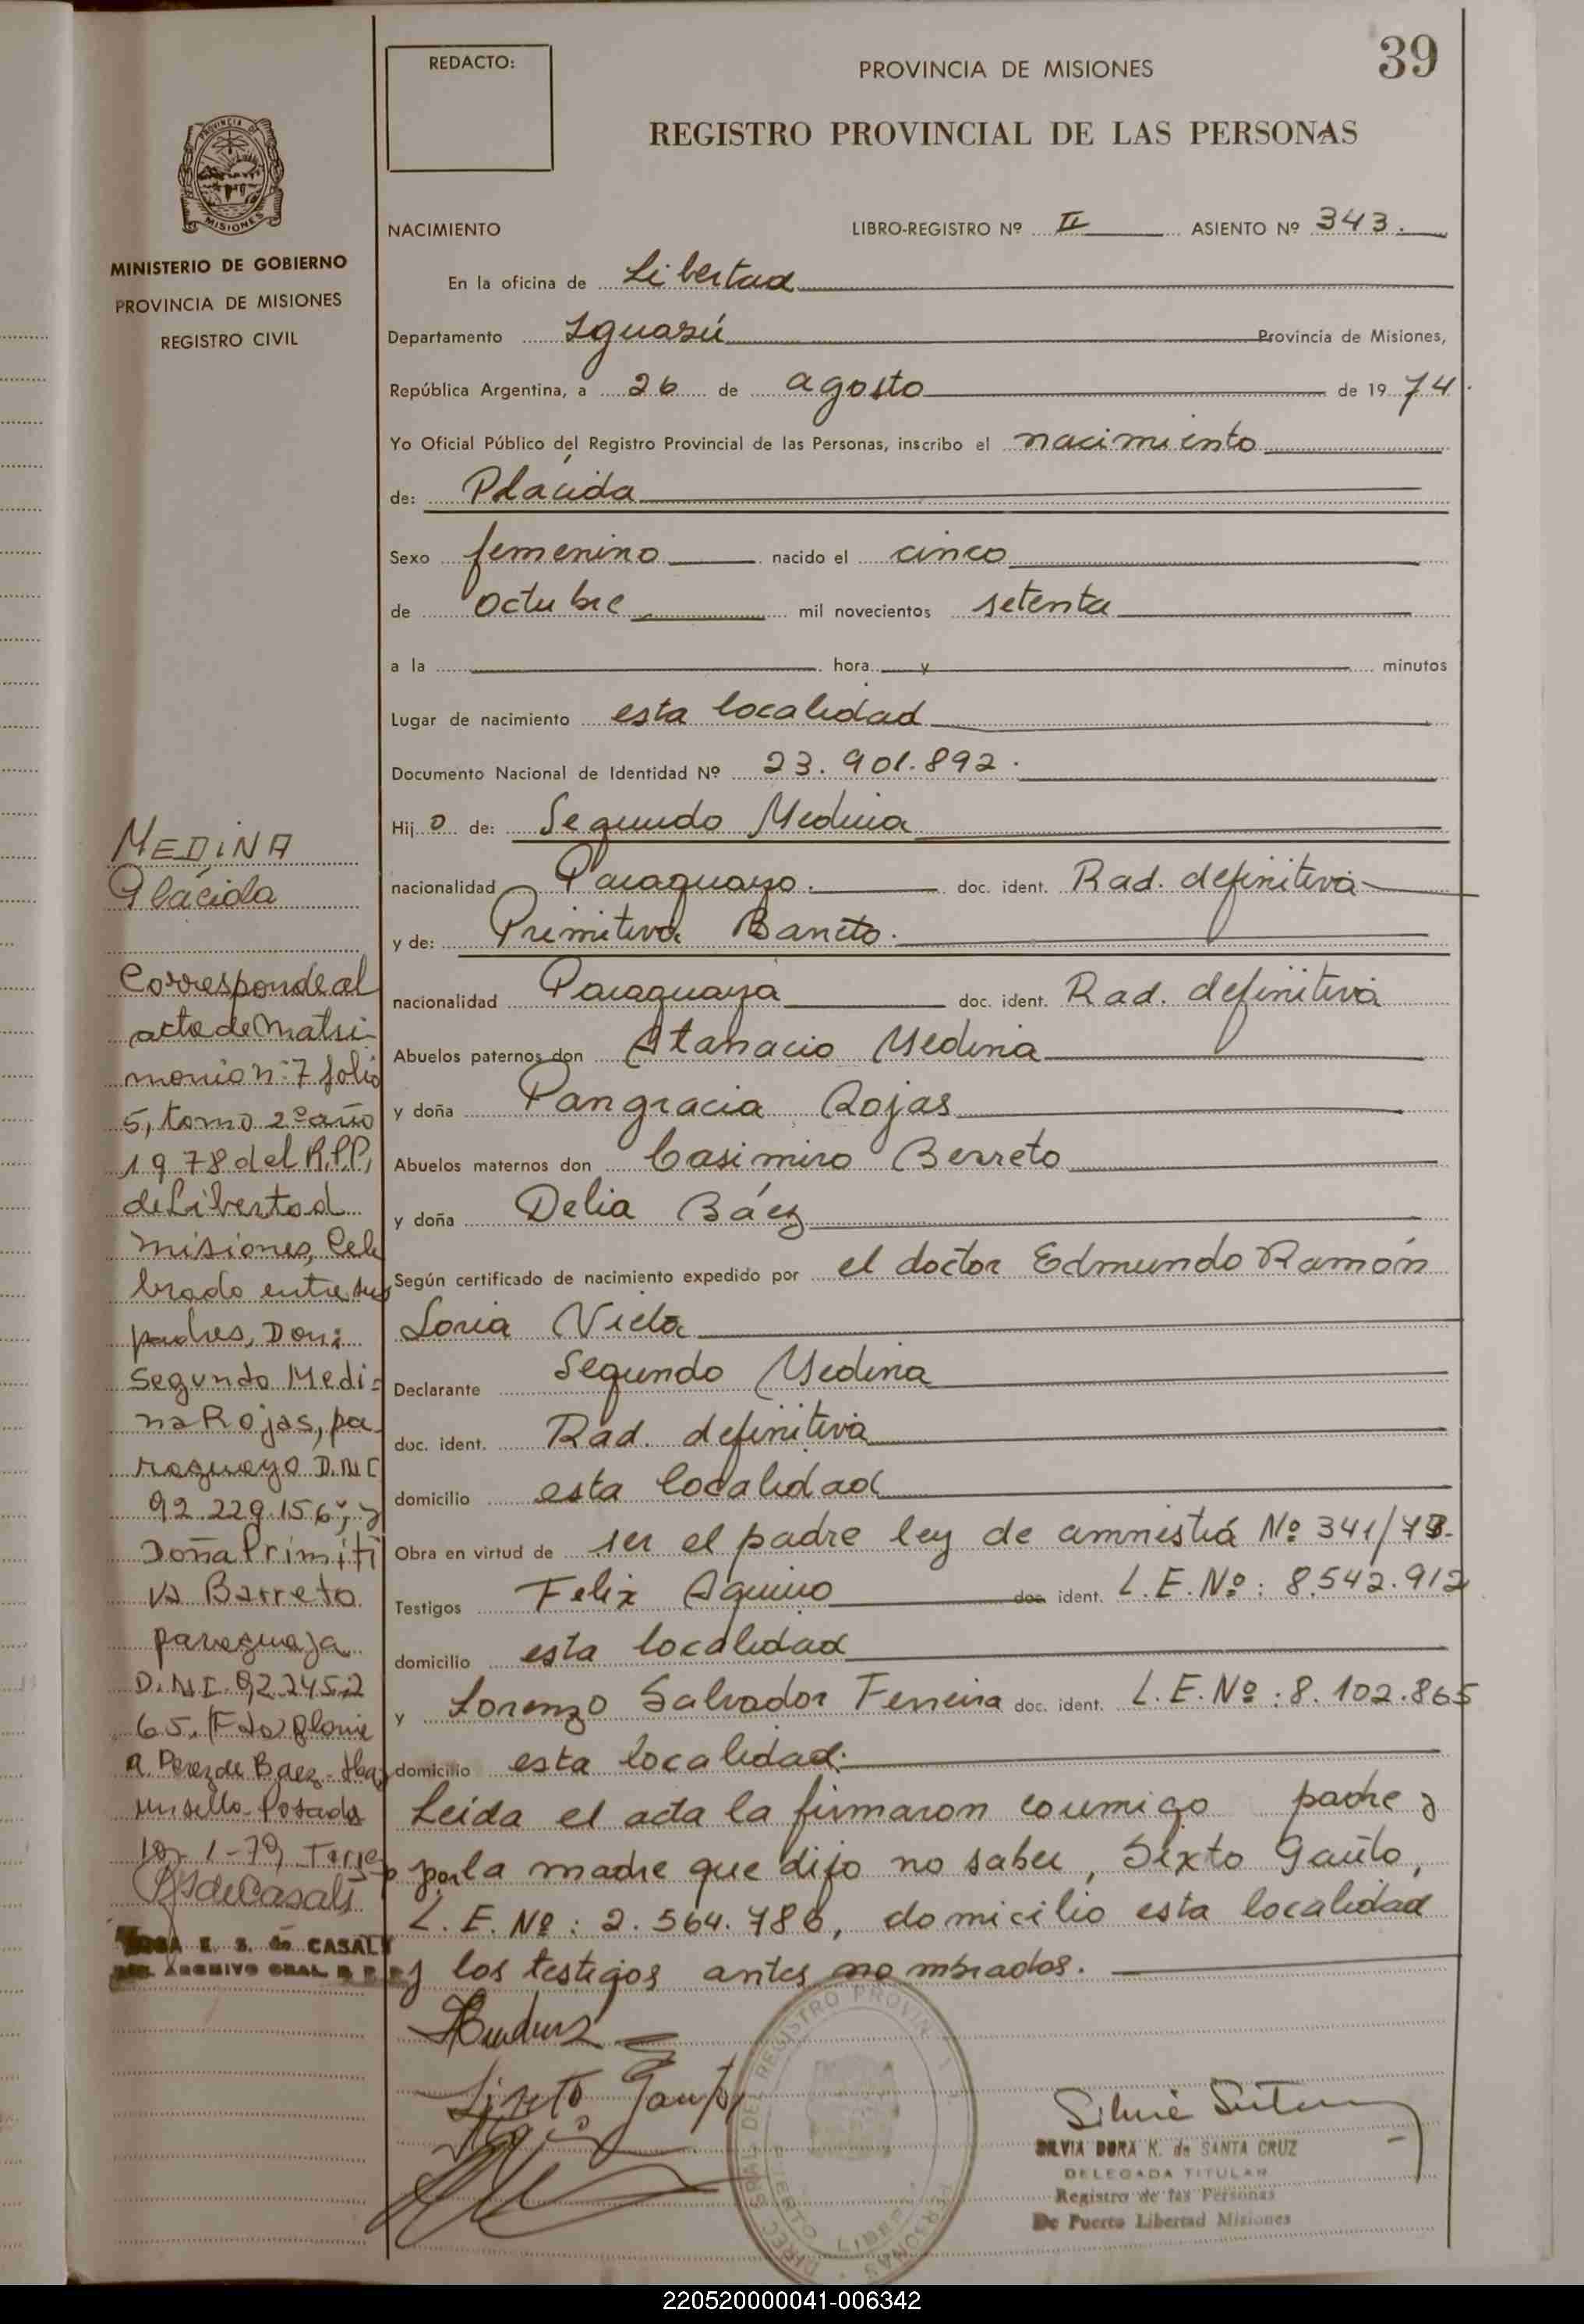 39
REDACTO:
PROVINCIA DE MISIONES
REGISTRO PROVINCIAL DE LAS PERSONAS
PROVINCIA DE
MISIONES
MINISTERIO DE GOBIERNO
PROVINCIA DE MISIONES
REGISTRO CIVIL
NACIMIENTO LIBRO-REGISTRO Nº II ASIENTO Nº 343.
En la oficina de Libertad
Departamento Iguazú Provincia de Misiones,
República Argentina, a 26 de agosto de 1974.
Yo Oficial Público del Registro Provincial de las Personas, inscribo el nacimiento
de: Plácida
Sexo femenino nacido el cinco
de octubre mil novecientos setenta
a la hora y minutos
Lugar de nacimiento esta localidad
Documento Nacional de Identidad Nº 23.901.892.
Hij o de: Segundo Medina
nacionalidad Paraguayo. doc. ident. Rad. definitiva
y de: Primitiva Bareto.
nacionalidad Paraguaya doc. ident. Rad. definitiva
Abuelos paternos don Atanacio Medina
y doña Pangracia Rojas
Abuelos maternos don Casimiro Berreto
y doña Delia Báez
Según certificado de nacimiento expedido por el doctor Edmundo Ramón
Loria Viela
Declarante Segundo Medina
doc. ident. Rad. definitiva
domicilio esta localidad
Obra en virtud de ser el padre ley de amnistiá Nº 341/73.
Testigos Felix Aquino doc. ident. L.E.Nº: 8.542.912
domicilio esta localidad
y Lorenzo Salvador Ferreira doc. ident. L.E.Nº: 8.102.865
domicilio esta localidad.
Leída el acta la firmaron conmigo padre y
por la madre que dijo no saber, Sixto Gauto,
L.E.Nº: 2.564.786, domicilio esta localidad
y los testigos antes nombrados.
MEDINA
Plácida
Corresponde al
acta de Matri
monio nº 7 folio
5, tomo 2º año
1978 del R.P.P,
de Libertad
Misiones, Cele
brado entre sus
padres, Don:
Segundo Medi-
na Rojas, pa
raguayo D.N.I
92.229.156; y
Doña Primiti
va Barreto
paraguaya
D.N.I. 92.245.2
65. (Fdo) Glorie
a Perez de Baez - Hay
un sello - Posadas
10-1-79,
ESdeCasali
ROSA E. S. de CASALI
ARCHIVO GRAL R P P
Sixto Gauto
DIREC. GRAL. DEL REGISTRO PROVIN
PERSONAS
PUERTO LIBER
SILVIA DORA K. de SANTA CRUZ
DELEGADA TITULAR
Registro de las Personas
De Puerto Libertad Misiones
220520000041-006342